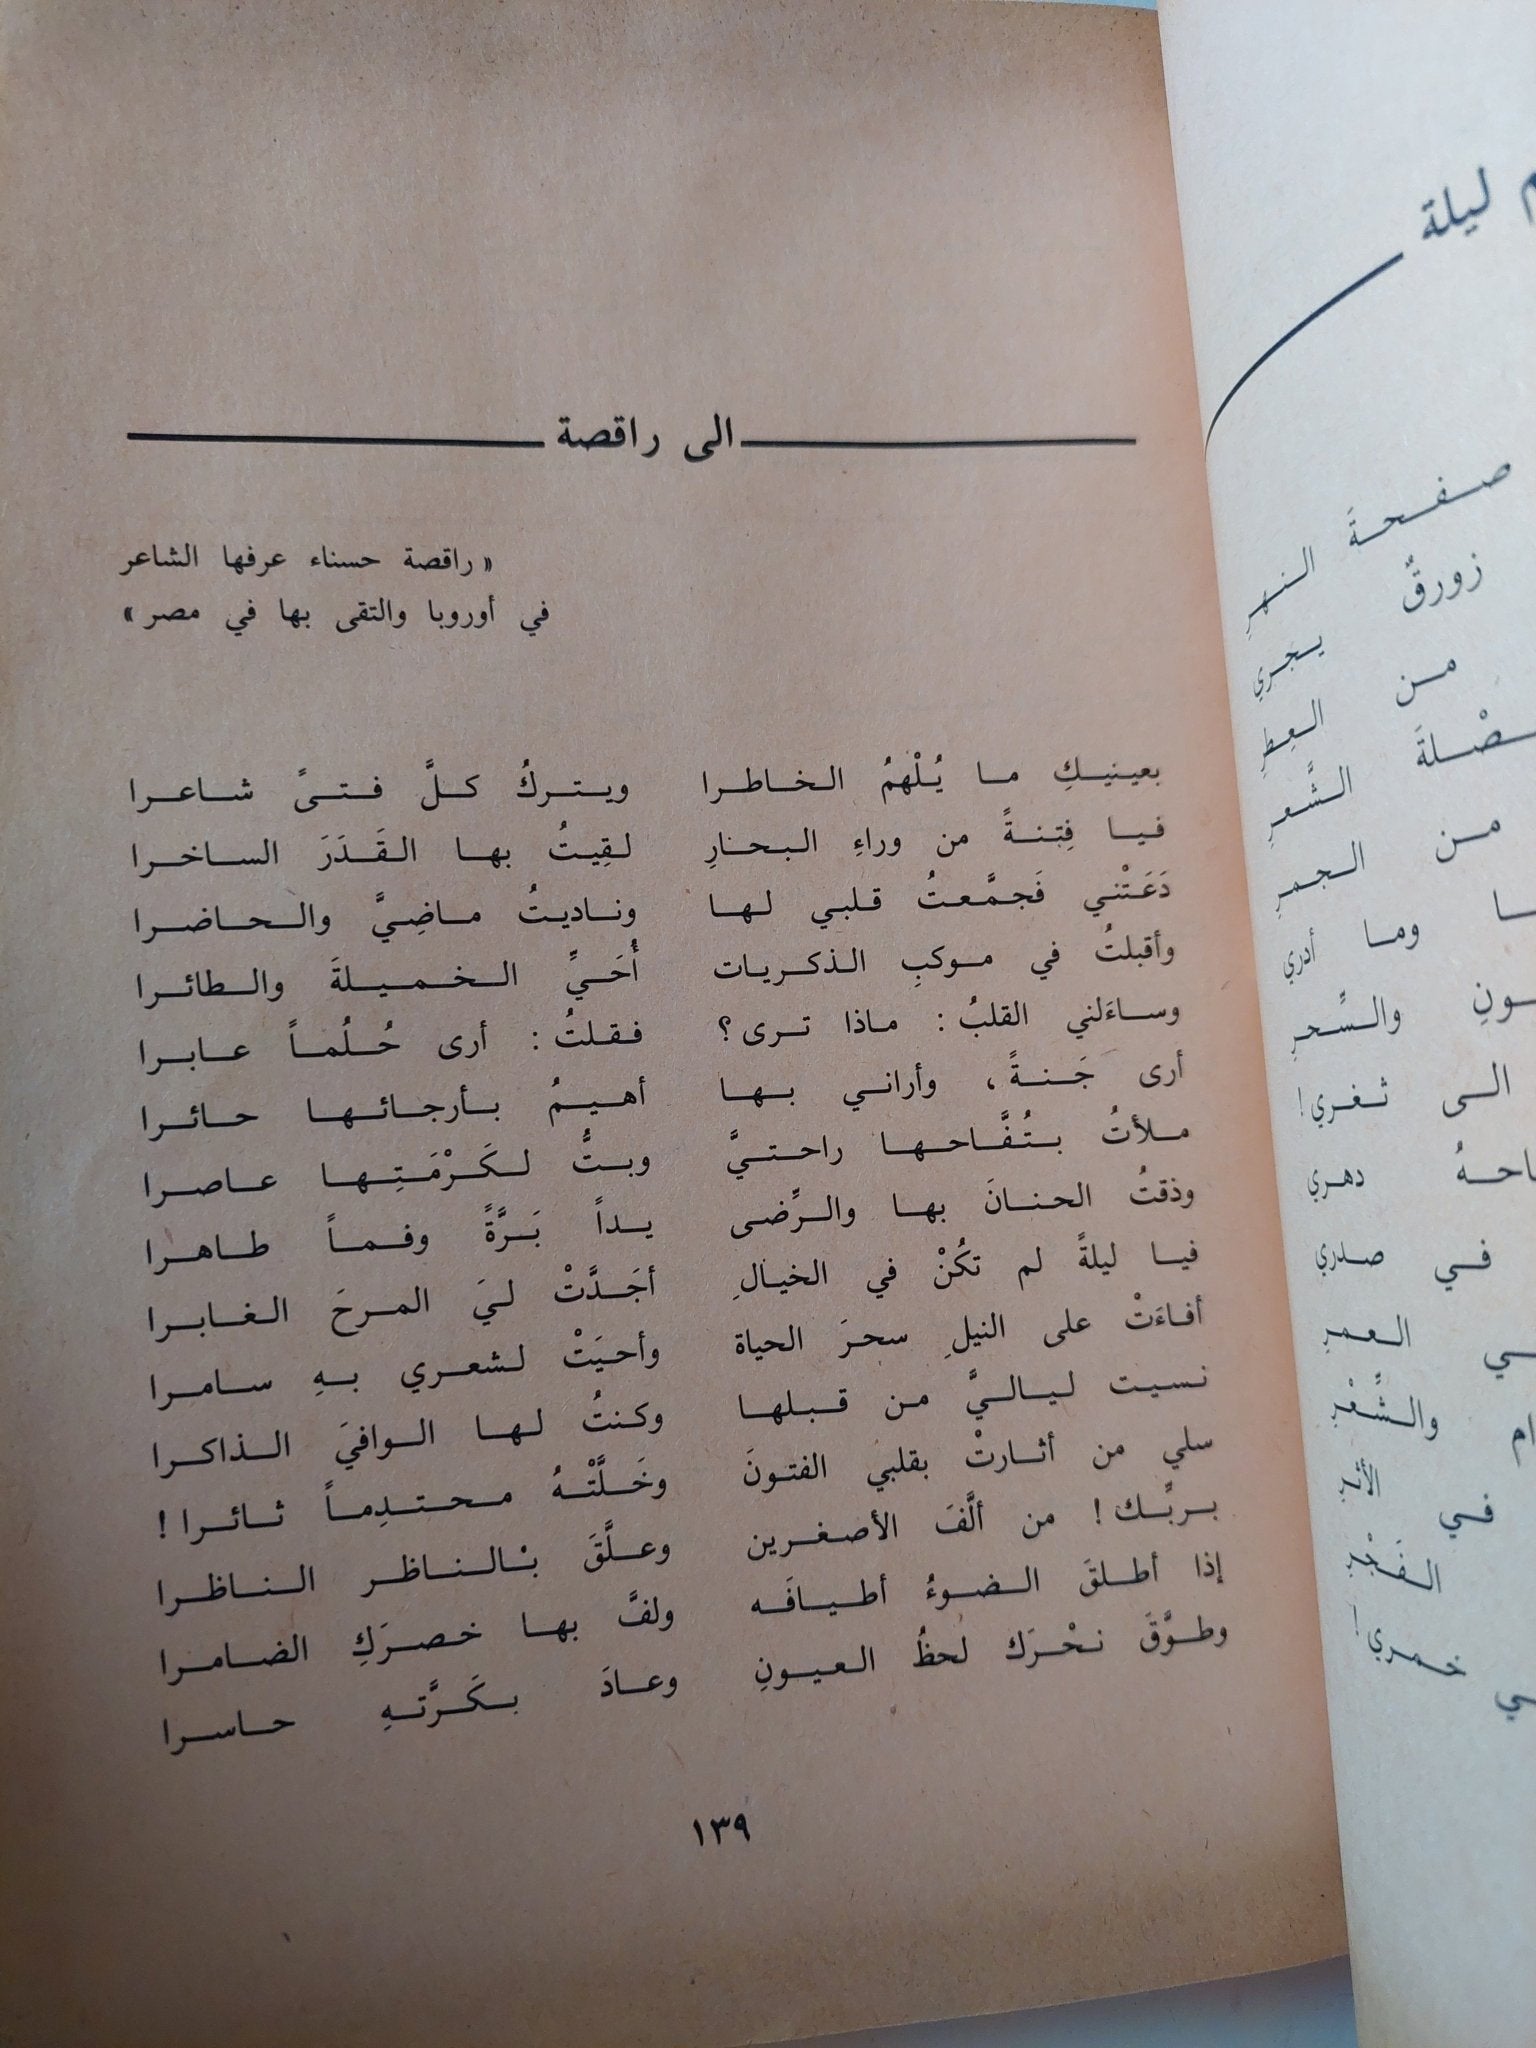 الى راقصة
« راقصة حسناء عرفها الشاعر
في أوروبا والتقى بها في مصر »
بعينيكِ ما يُلْهمُ الخاطرا ويتركُ كلَّ فتىً شاعرا
فيا فِتنةً من وراءِ البحارِ لقِيتُ بها القَدَرَ الساخرا
دَعَتْني فَجمَّعتُ قلبي لها وناديتُ ماضِيَّ والحاضرا
وأقبلتُ في موكبِ الذكريات أُحَيِّ الخميلةَ والطائرا
وساءَلني القلبُ : ماذا ترى ؟ فقلتُ : أرى حُلُماً عابرا
أرى جَنةً ، وأراني بها أهيمُ بأرجائها حائرا
ملأتُ بتُفَّاحها راحتيَّ وبتُّ لكَرْمَتِها عاصرا
وذقتُ الحنانَ بها والرِّضى يداً بَرَّةً وفماً طاهرا
فيا ليلةً لم تكُنْ في الخيالِ أجَدَّتْ ليَ المرحَ الغابرا
أفاءَتْ على النيلِ سحرَ الحياة وأحيَتْ لشعري بهِ سامرا
نسيت لياليَّ من قبلها وكنتُ لها الوافيَ الذاكرا
سلي من أثارتْ بقلبي الفتونَ وخَلَّتْهُ محتدِماً ثائرا !
بربِّك ! من ألَّفَ الأصغرين وعلَّقَ بْالناظر الناظرا
إذا أطلقَ الضوءُ أطيافَه ولفَّ بها خصرَكِ الضامرا
وطوَّقَ نحْرَك لحظُ العيونِ وعادَ بكَرَّتهِ حاسرا
١٣٩
ليلة
صفحةَ النهرِ
زورقٌ يجري
من العِطرِ
الشَّعرِ
من الجمرِ
وما أدري
والسِّحرِ
الى ثغري !
دهري
في صدري
العمرِ
والشِّعْرِ
في الأثرِ
الفَجْرِ
خمري !